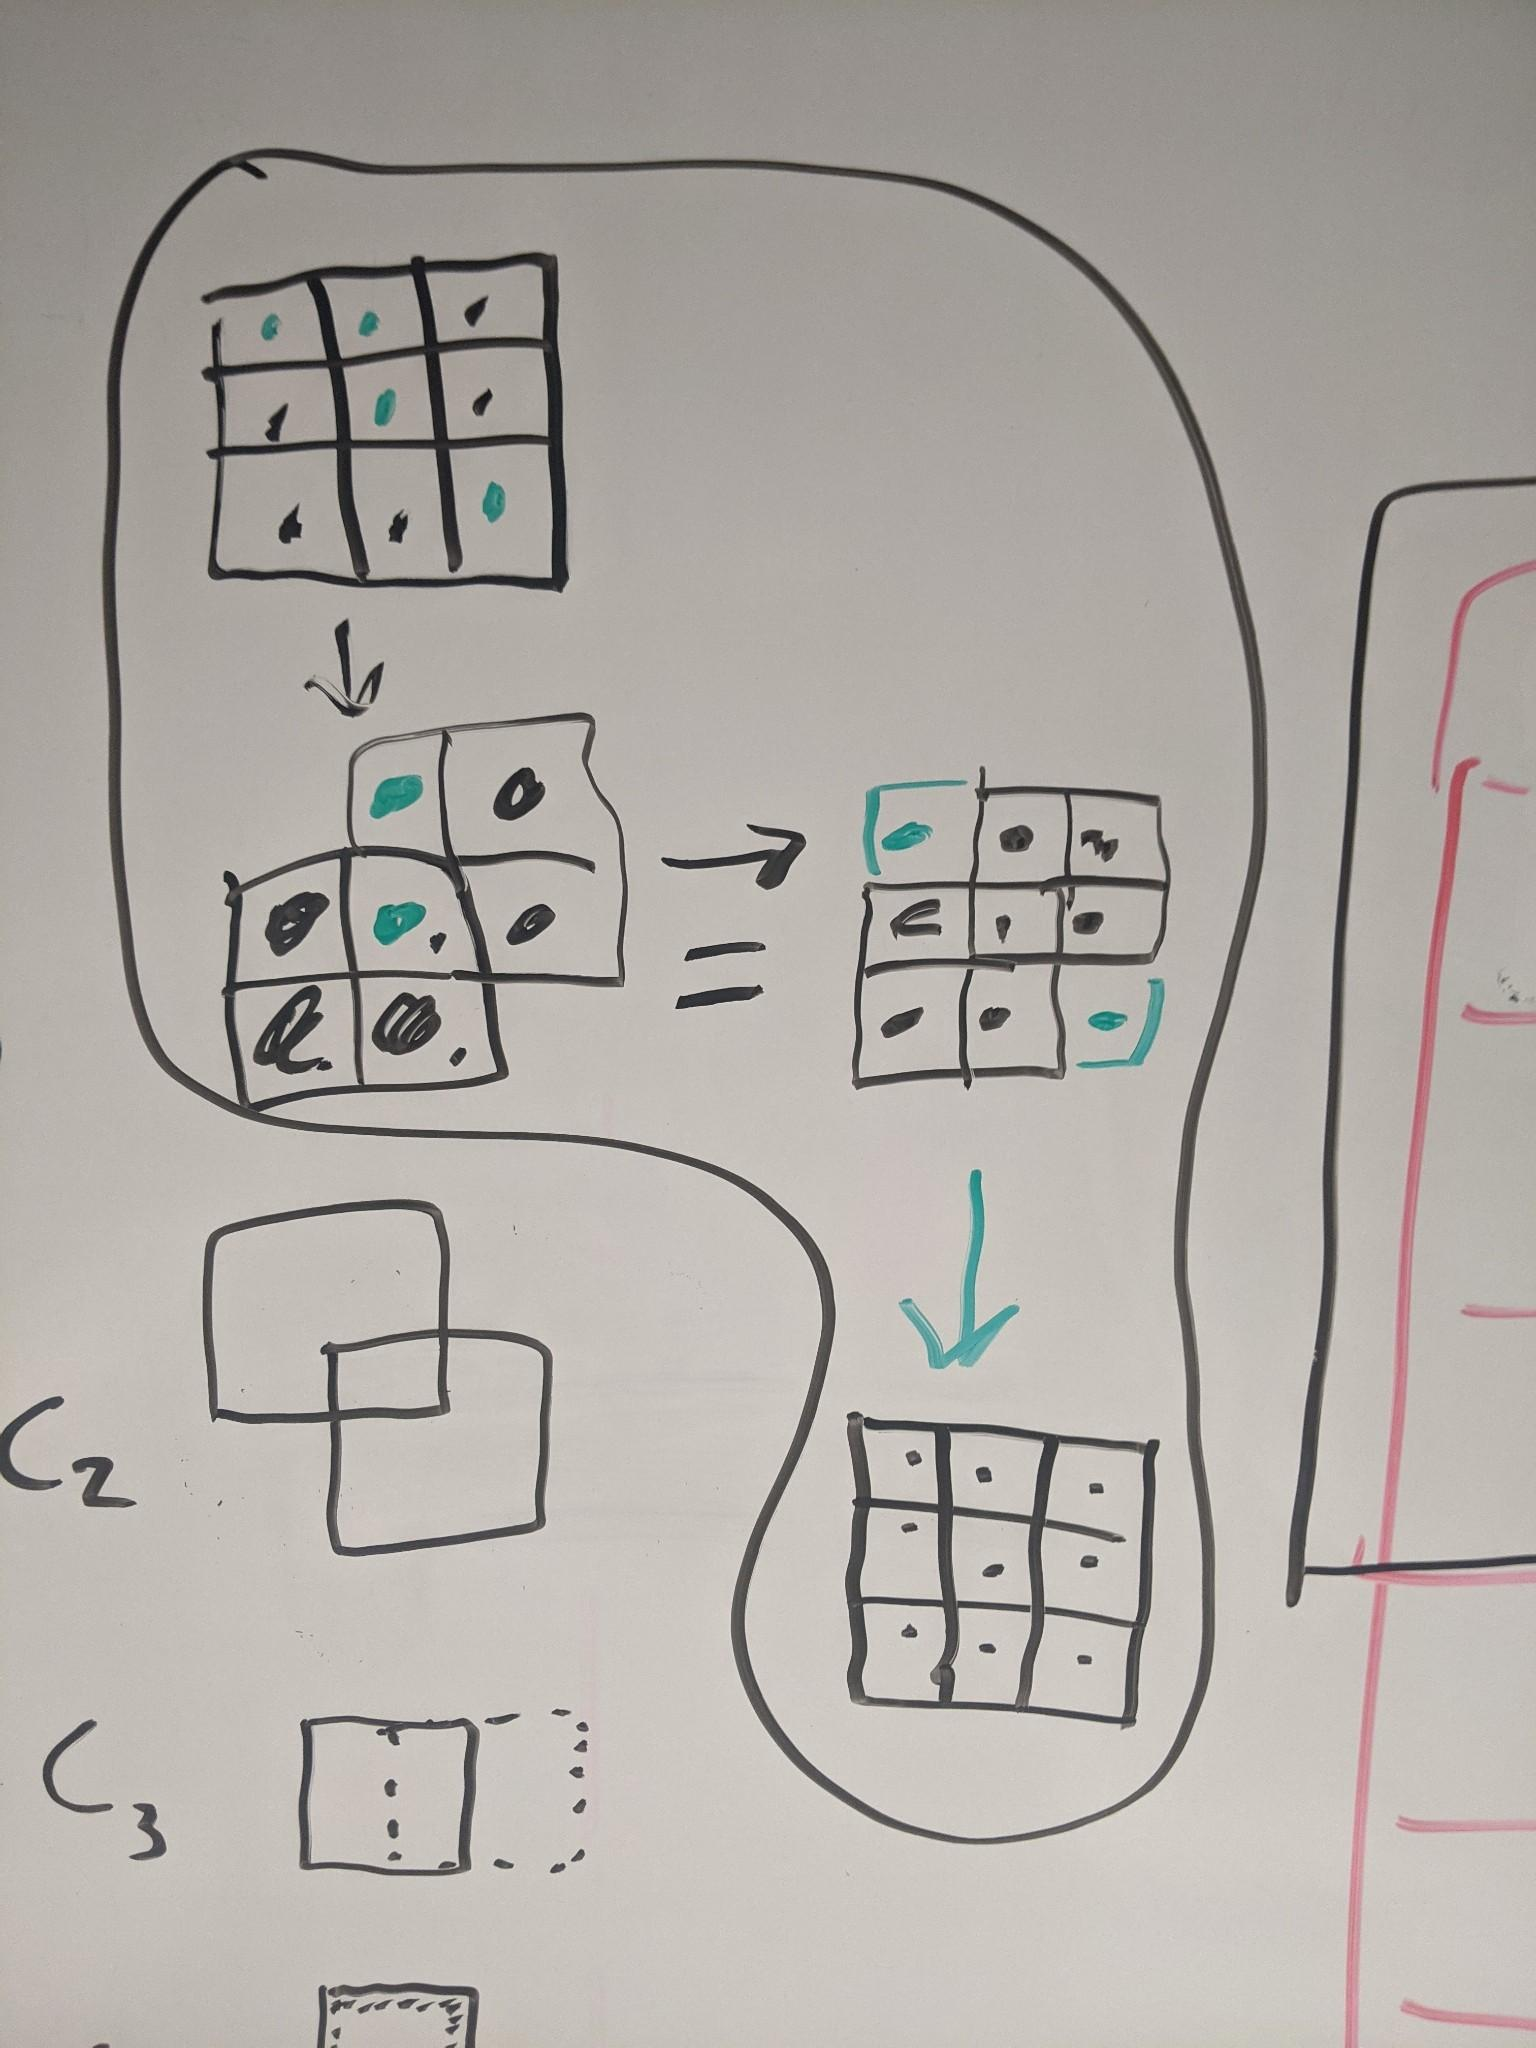 =
C2
C3